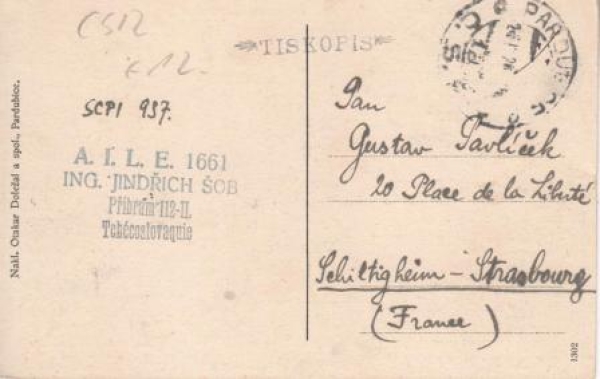 CS12
€12.
TISKOPIS
SCPI 957.
A. I. L. E. 1661
ING. JINDŘICH ŠOB
Příbram 112-II.
Tchécoslovaquie
Nakl. Otakar Doležal a spol., Pardubice.
PARDUBICE
Pan
Gustav Pavlíček
20 Place de la Liberté
Schiltigheim - Strasbourg
(France)
1302